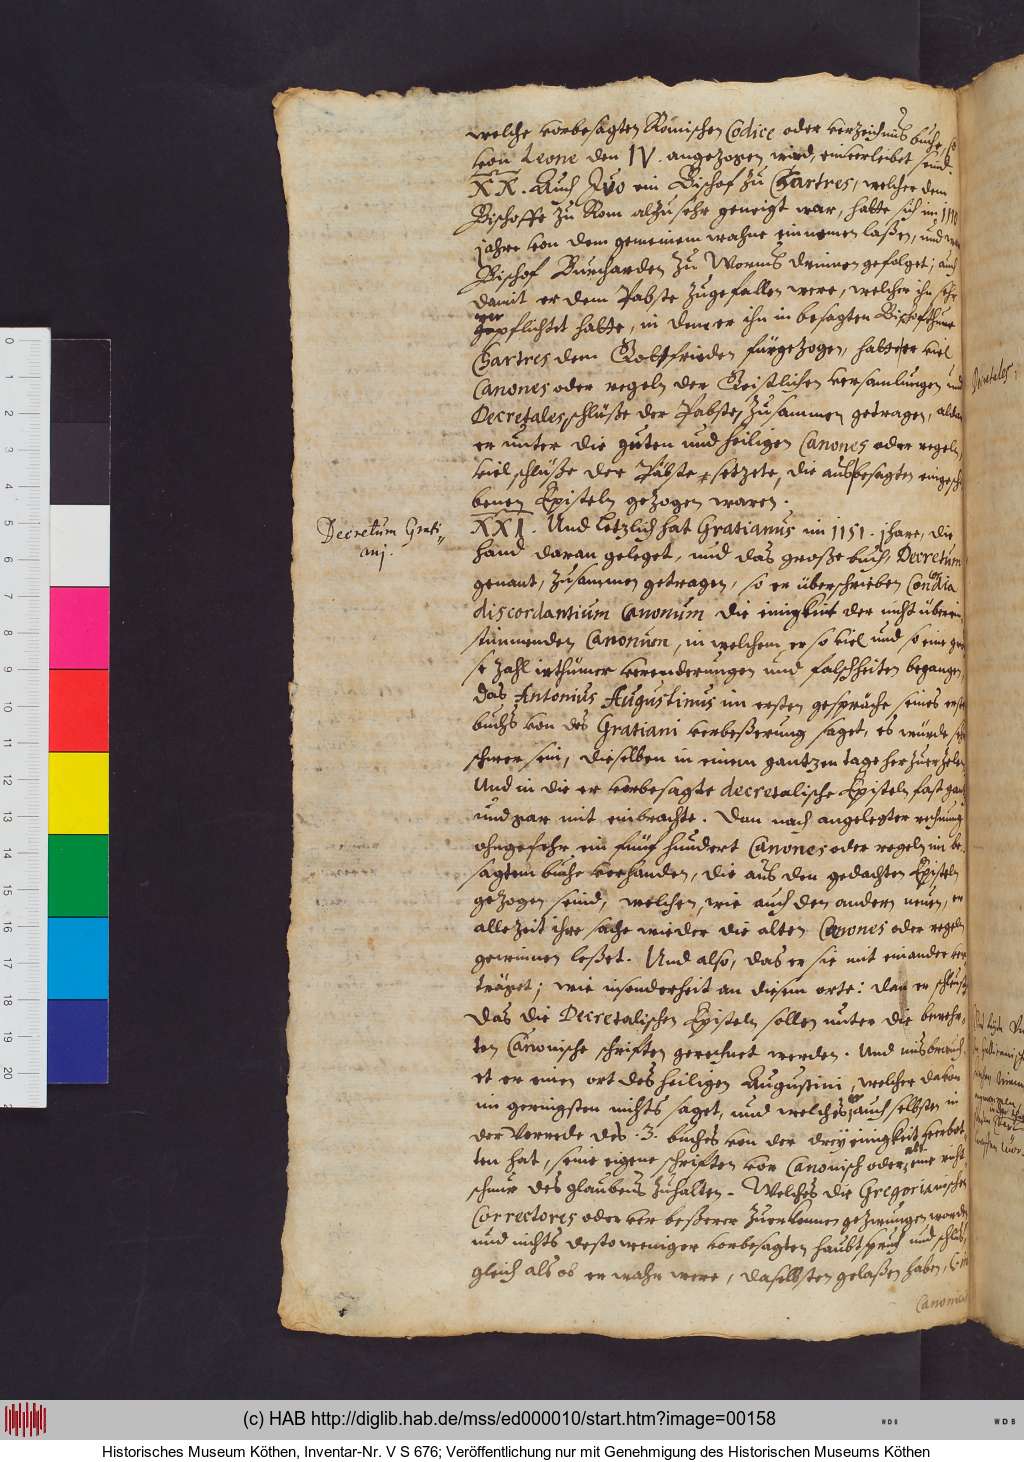 welche vorbesagten Römischen Codice oder verzeichnüs buche, so
von Leone den IV. angezogen wird, einverleibet seind.
XX. Auch Ivo ein Bischof zu Chartres, welcher dem
Bischoffe zu Rom alzu sehr geneigt war, hatte sich im 1110
jahre von dem gemeinem wahne einnemen laßen, und war
Bischof Burcharden zu Worms drinnen gefolget; auch
damit er dem Pabste zugefallen were, welcher ihn sehr
verpflichtet hatte, in dem er ihn in besagten Bischofthume
Chartres dem Gottfrieden fürgezogen, hatte er viel
Canones oder regeln der Geistlichen versamlungen und
Decretales, schlüße der Päbste, zusammen getragen, alda
er unter die guten und heiligen Canones oder regeln,
viel schlüße der Päbste setzete, die aus besagten eingescho
benen Episteln gezogen waren.
Decretum Grati
anj.
XXI. Und letzlich hat Gratianus im 1151. jhare, die
hand daran geleget, und das große buch, Decretum
genant, zusammen getragen, so er überschrieben Concordia
discordantium Canonum die einigkeit der nicht überein
stimmenden Canonum, in welchem er so viel und so eine gro
se zahl irthümer verenderungen und falschheiten begangen,
das Antonius Augustinus im ersten gespräche seines ersten
buchs von des Gratiani verbeßerung saget, es würde sehr
schwer sein, dieselben in einem gantzen tage her zu erzelen.
Und in die er vorbesagte decretalische Episteln fast gantz
und gar mit einbrachte. Dan nach angelegter rechnung
ohngefehr ein fünf hundert Canones oder regeln im be
sagtem buche verhanden, die aus den gedachten Episteln
gezogen seind, welchen, wie auch den andern neuen, er
alle zeit ihre sache wieder die alten Canones oder regeln
gewinnen leßet. Und also, das er sie mit einander ver
träget; wie insonderheit an diesem orte: dan er schleust,
das die Decretalischen Episteln sollen unter die bewehr,
ten Canonische schriften gerechnet werden. Und misbrauch
et er einen ort des heiligen Augustini, welcher davon
im geringsten nichts saget, und welches er auch selbsten in
der Vorrede des .3. buches von der dreyeinigkeit verbot
ten hat, seine eigene schriften vor Canonisch oder als eine richt
schnur des glaubens zuhalten. Welches die Gregorianischen
Correctores oder verbeßerer zuerkennen gezwungen worden
und nichts destoweniger vorbesagten haubtspruch und schlus,
gleich als ob er wahr were, daselbsten gelaßen haben, Im
Canonicis
Decretales
(c) HAB http://diglib.hab.de/mss/ed000010/start.htm?image=00158
Historisches Museum Köthen, Inventar-Nr. V S 676; Veröffentlichung nur mit Genehmigung des Historischen Museums Köthen